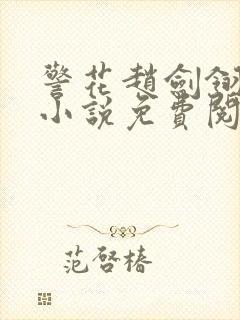 警花趙劍釵
小說免費閱
范啓椿